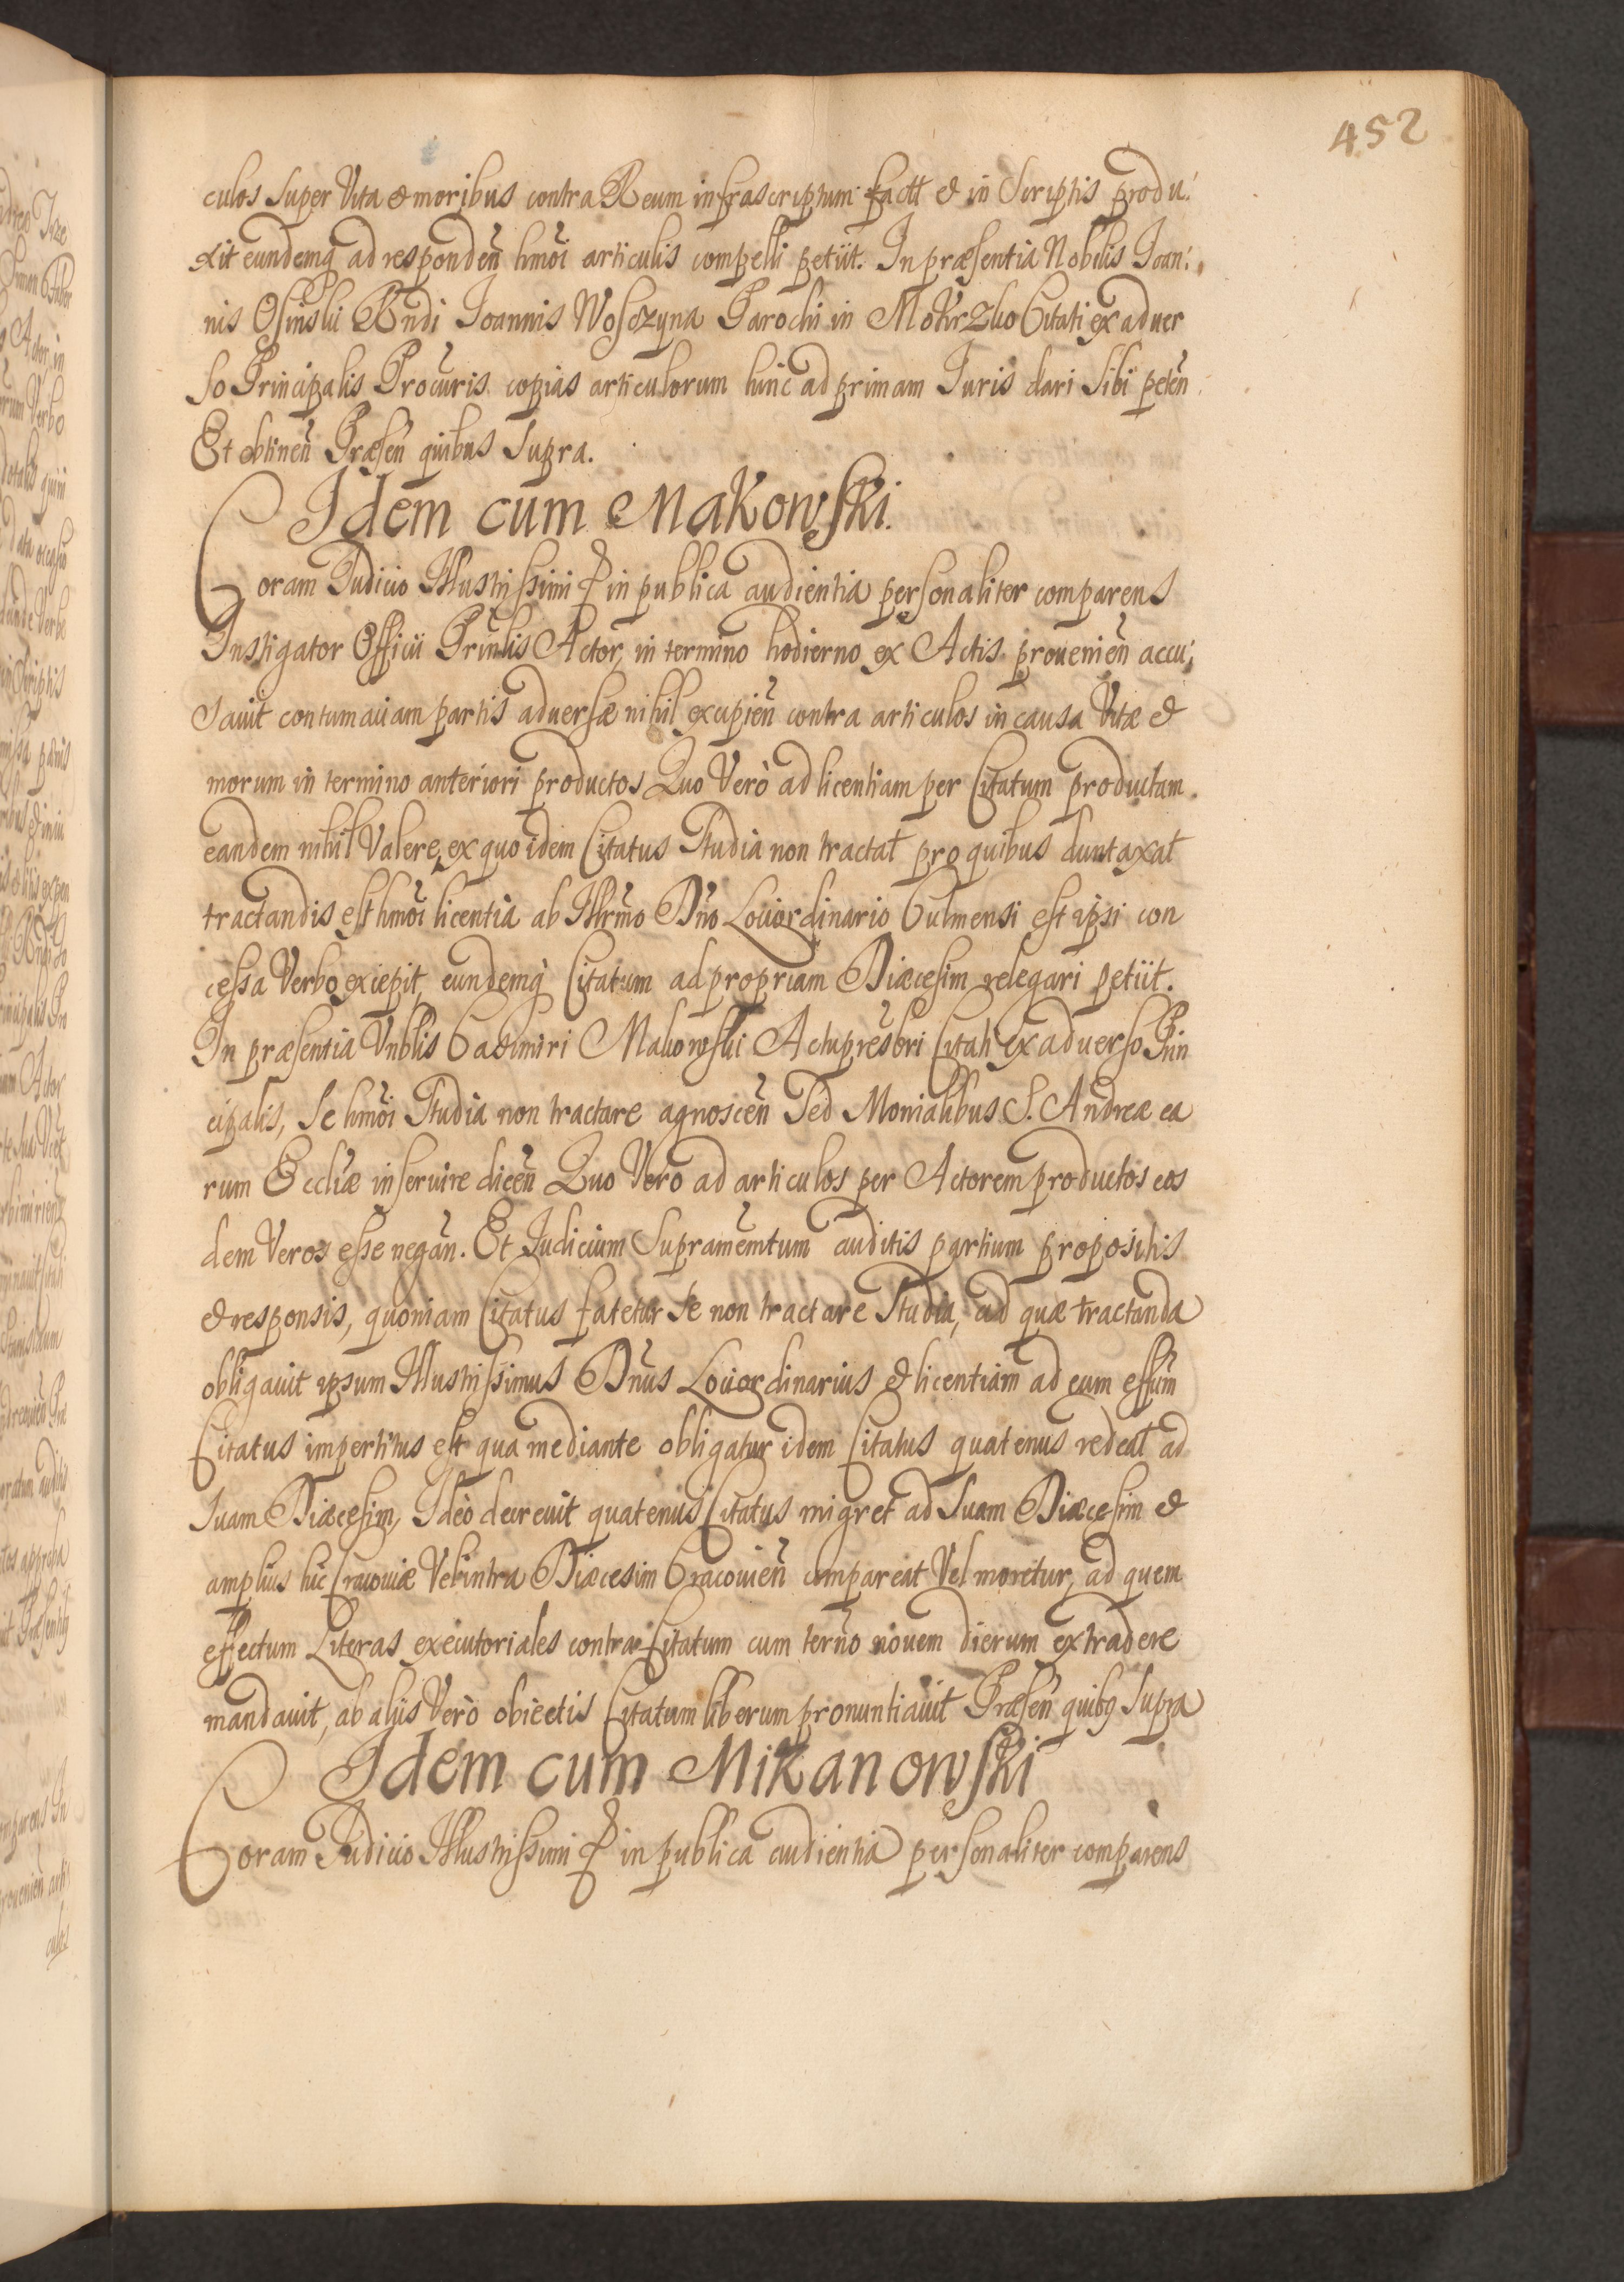 452
culos super Vita et moribus contra Reum infrascriptum factt et in Scriptis produ:
xit eundemq ad responden hmoi articulis compelli petiit. In præsentia Nobilis Ioan:
nis Osinski Rndi Ioannis Wosczyna Parochi in Mokrzko Citati ex aduer
so Principalis Procuris copias articulorum hinc ad primam Iuris dari sibi peten
Et obtinen Præsen quibus supra.
Idem cum Makowski.
Coram Iudicio Illustrissimi & in publica audientia personaliter comparens
Instigator Officii Prinlis Actor, in termino hodierno ex Actis prouenien accu:
sauit contumaciam partis aduersæ nihil excipien contra articulos in causa Vitæ et
morum in termino anteriori productos Quo Verò ad licentiam per Citatum productam
eandem nihil Valere, ex quo idem Citatus Studia non tractat pro quibus duntaxat
tractandis est hmoi licentia ab Illrmo Dno Lociordinario Culmensi est ipsi con
cessa Verbo excepit, eundemq Citatum ad propriam Diæcesim relegari petiit.
In præsentia Vnblis Casimiri Makowski Actupresbri Citati ex aduerso Prin
cipalis, se hmoi Studia non tractare agnoscen Sed Monialibus S. Andreæ ea
rum Eccliæ inseruire dicen Quo Vero ad articulos per Actorem productos eos
dem Veros esse negan. Et Iudicium Supramemtum auditis partium propositis
et responsis, quoniam Citatus fatetur se non tractare Studia, ad quæ tractanda
obligauit ipsum Illustrissimus Dnus Lociordinarius et licentiam ad eum effum
Citatus impertitus est qua mediante obligatur idem Citatus quatenus redeat ad
suam Diæcesim, Ideò decreuit quatenus Citatus migret ad suam Diæcesim et
amplius hic Cracouiæ Vel intra Diæcesim Cracouien compareat Vel moretur, ad quem
effectum Literas executoriales contra Citatum cum terno nouem dierum extradere
mandauit, ab aliis Verò obiectis Citatum liberum pronuntiauit Præsen quibq supra
Idem cum Mikanowski
Coram Iudicio Illustrissimi & in publica audientia personaliter comparens